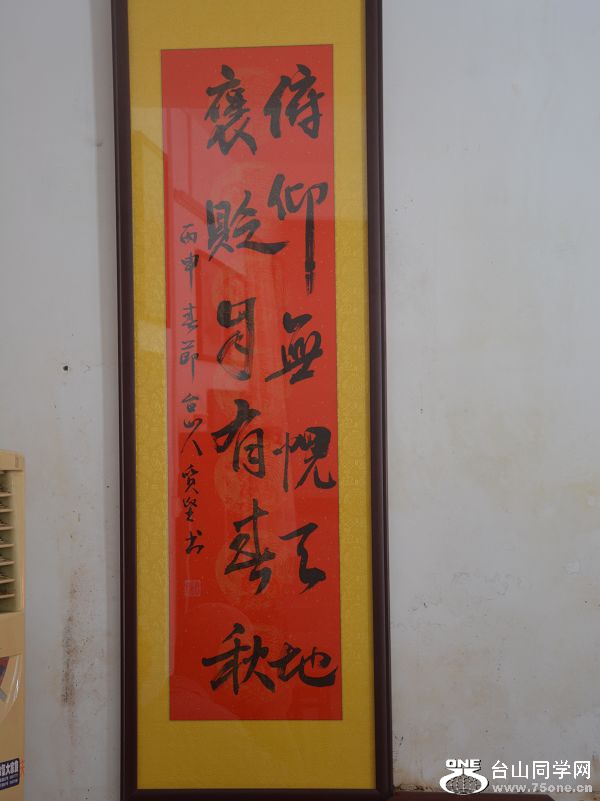 俯仰無愧天地
褒貶自有春秋
丙申春节台山人贤坚书
ONE
台山同学网
www.75one.cn